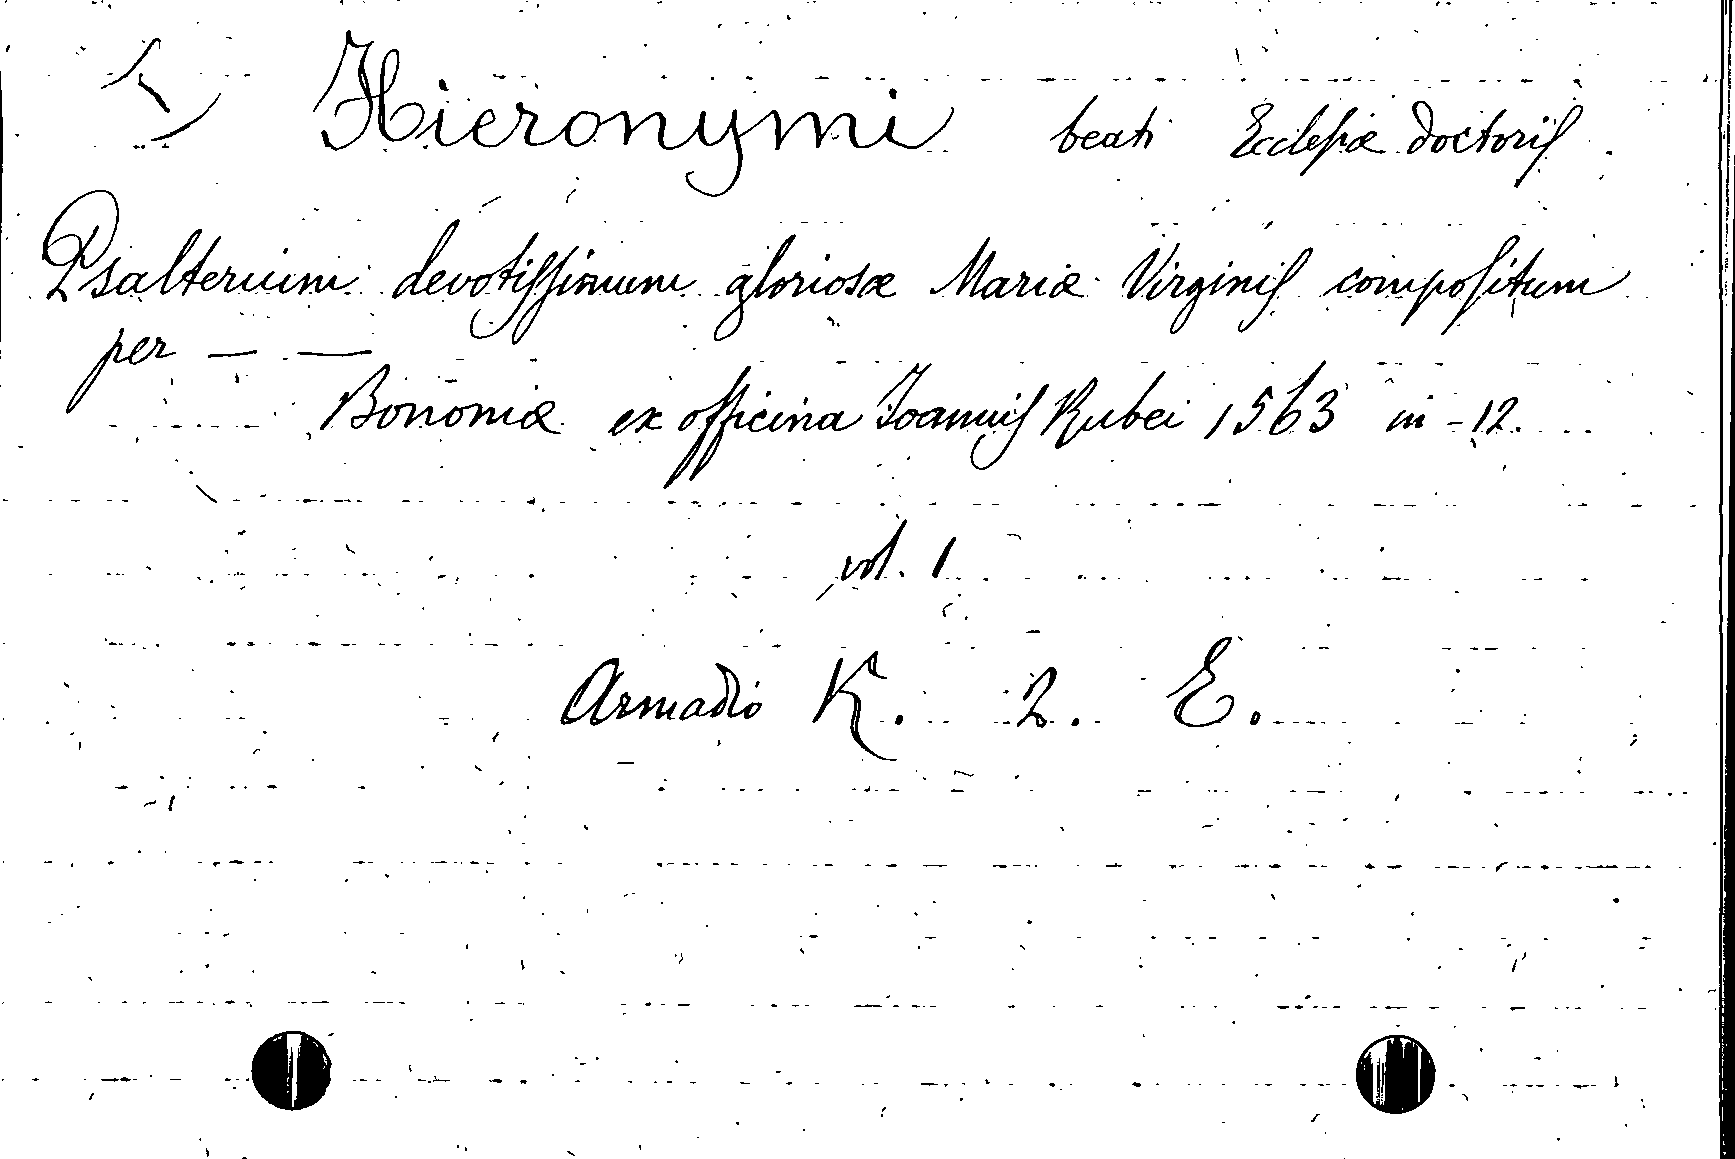 Hieronymi beati Ecclesiæ doctoris
Psalterium devotissimum gloriosæ Mariæ Virginis compositum
per — —
Bononiæ ex officina Joannis Rubei 1563 in-12.
vol. 1
Armadio K. 2. E.